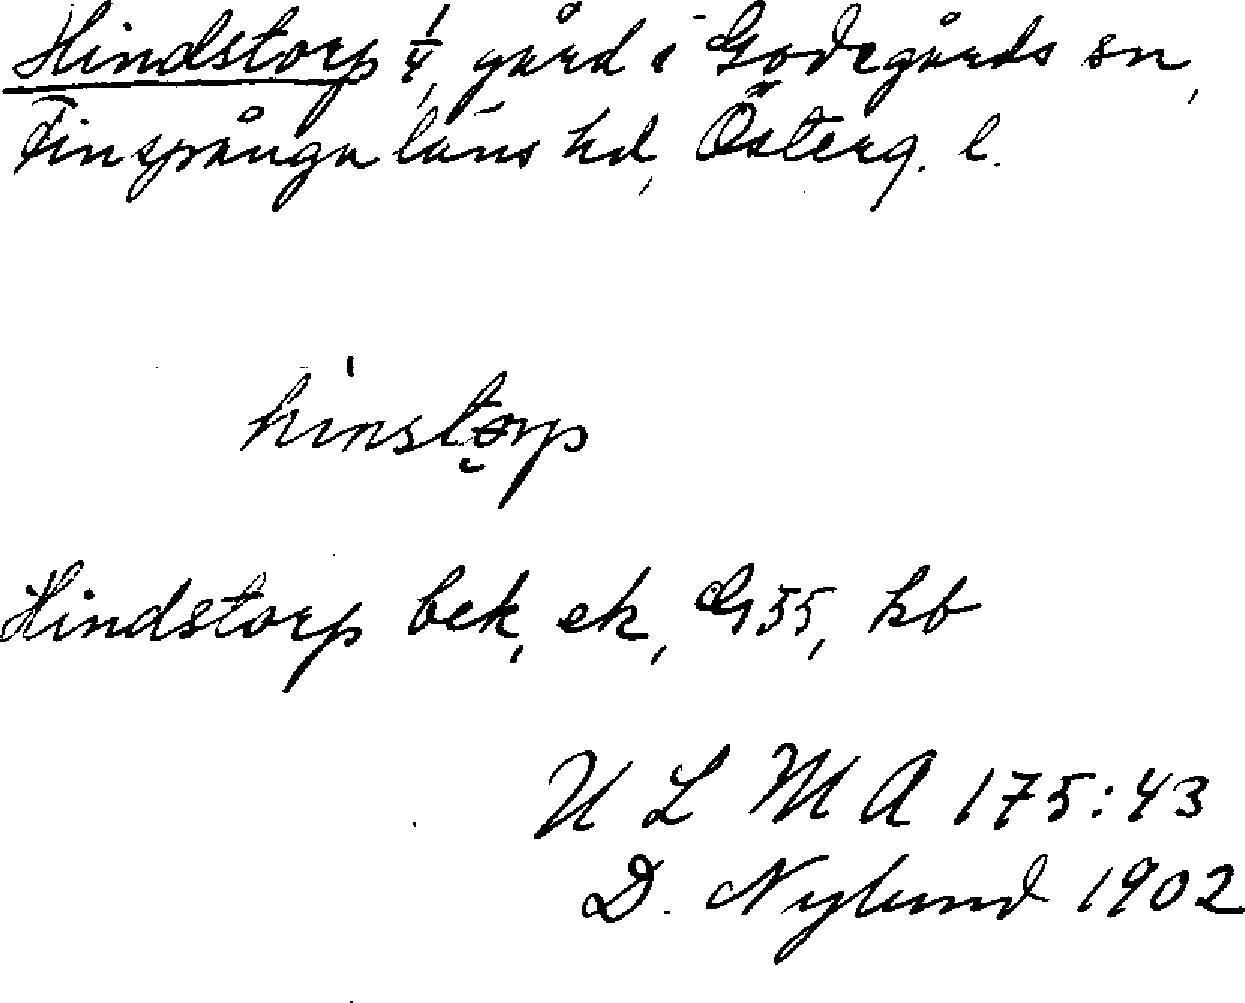 Hindstorp 1/4, gård i Godegårds sn,
Finspånga läns hd, Österg. l.
hinstorp
Hindstorp bek, ek, G55, kb
ULMA 175:43
D. Nylund 1902